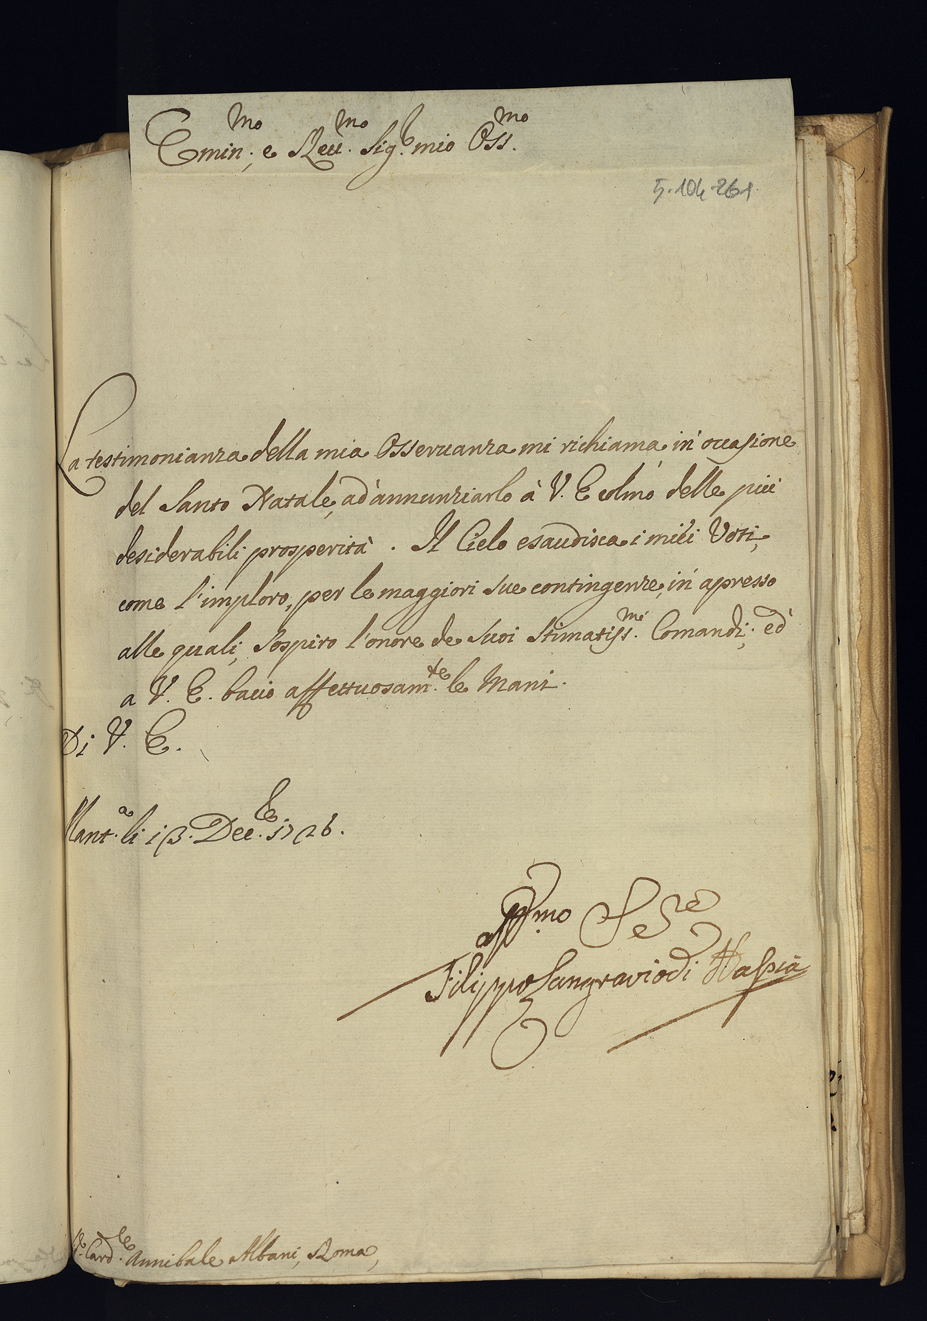 Emin.mo e Reu.mo Sig.e mio Oss.mo
5-104-261
La testimonianza della mia Osseruanza mi richiama in' occasione
del Santo Natale, ad' annunziarlo à V. E colmo delle piú
desiderabili prosperità. Il Cielo esaudisca i miei Voti,
come l'imploro, per le maggiori sue contingenze, in' apresso
alle quali, Sospiro l'onore de Suoi Stimatiss.mi Comandi; ed'
a V. E. bacio affettuosam.te le Mani.
Di V. E.
Mant.a li 13. Dec.e 1726.
aff.mo Se.re
Filippo Langravio di Hassia
Card.le Annibale Albani, Roma,